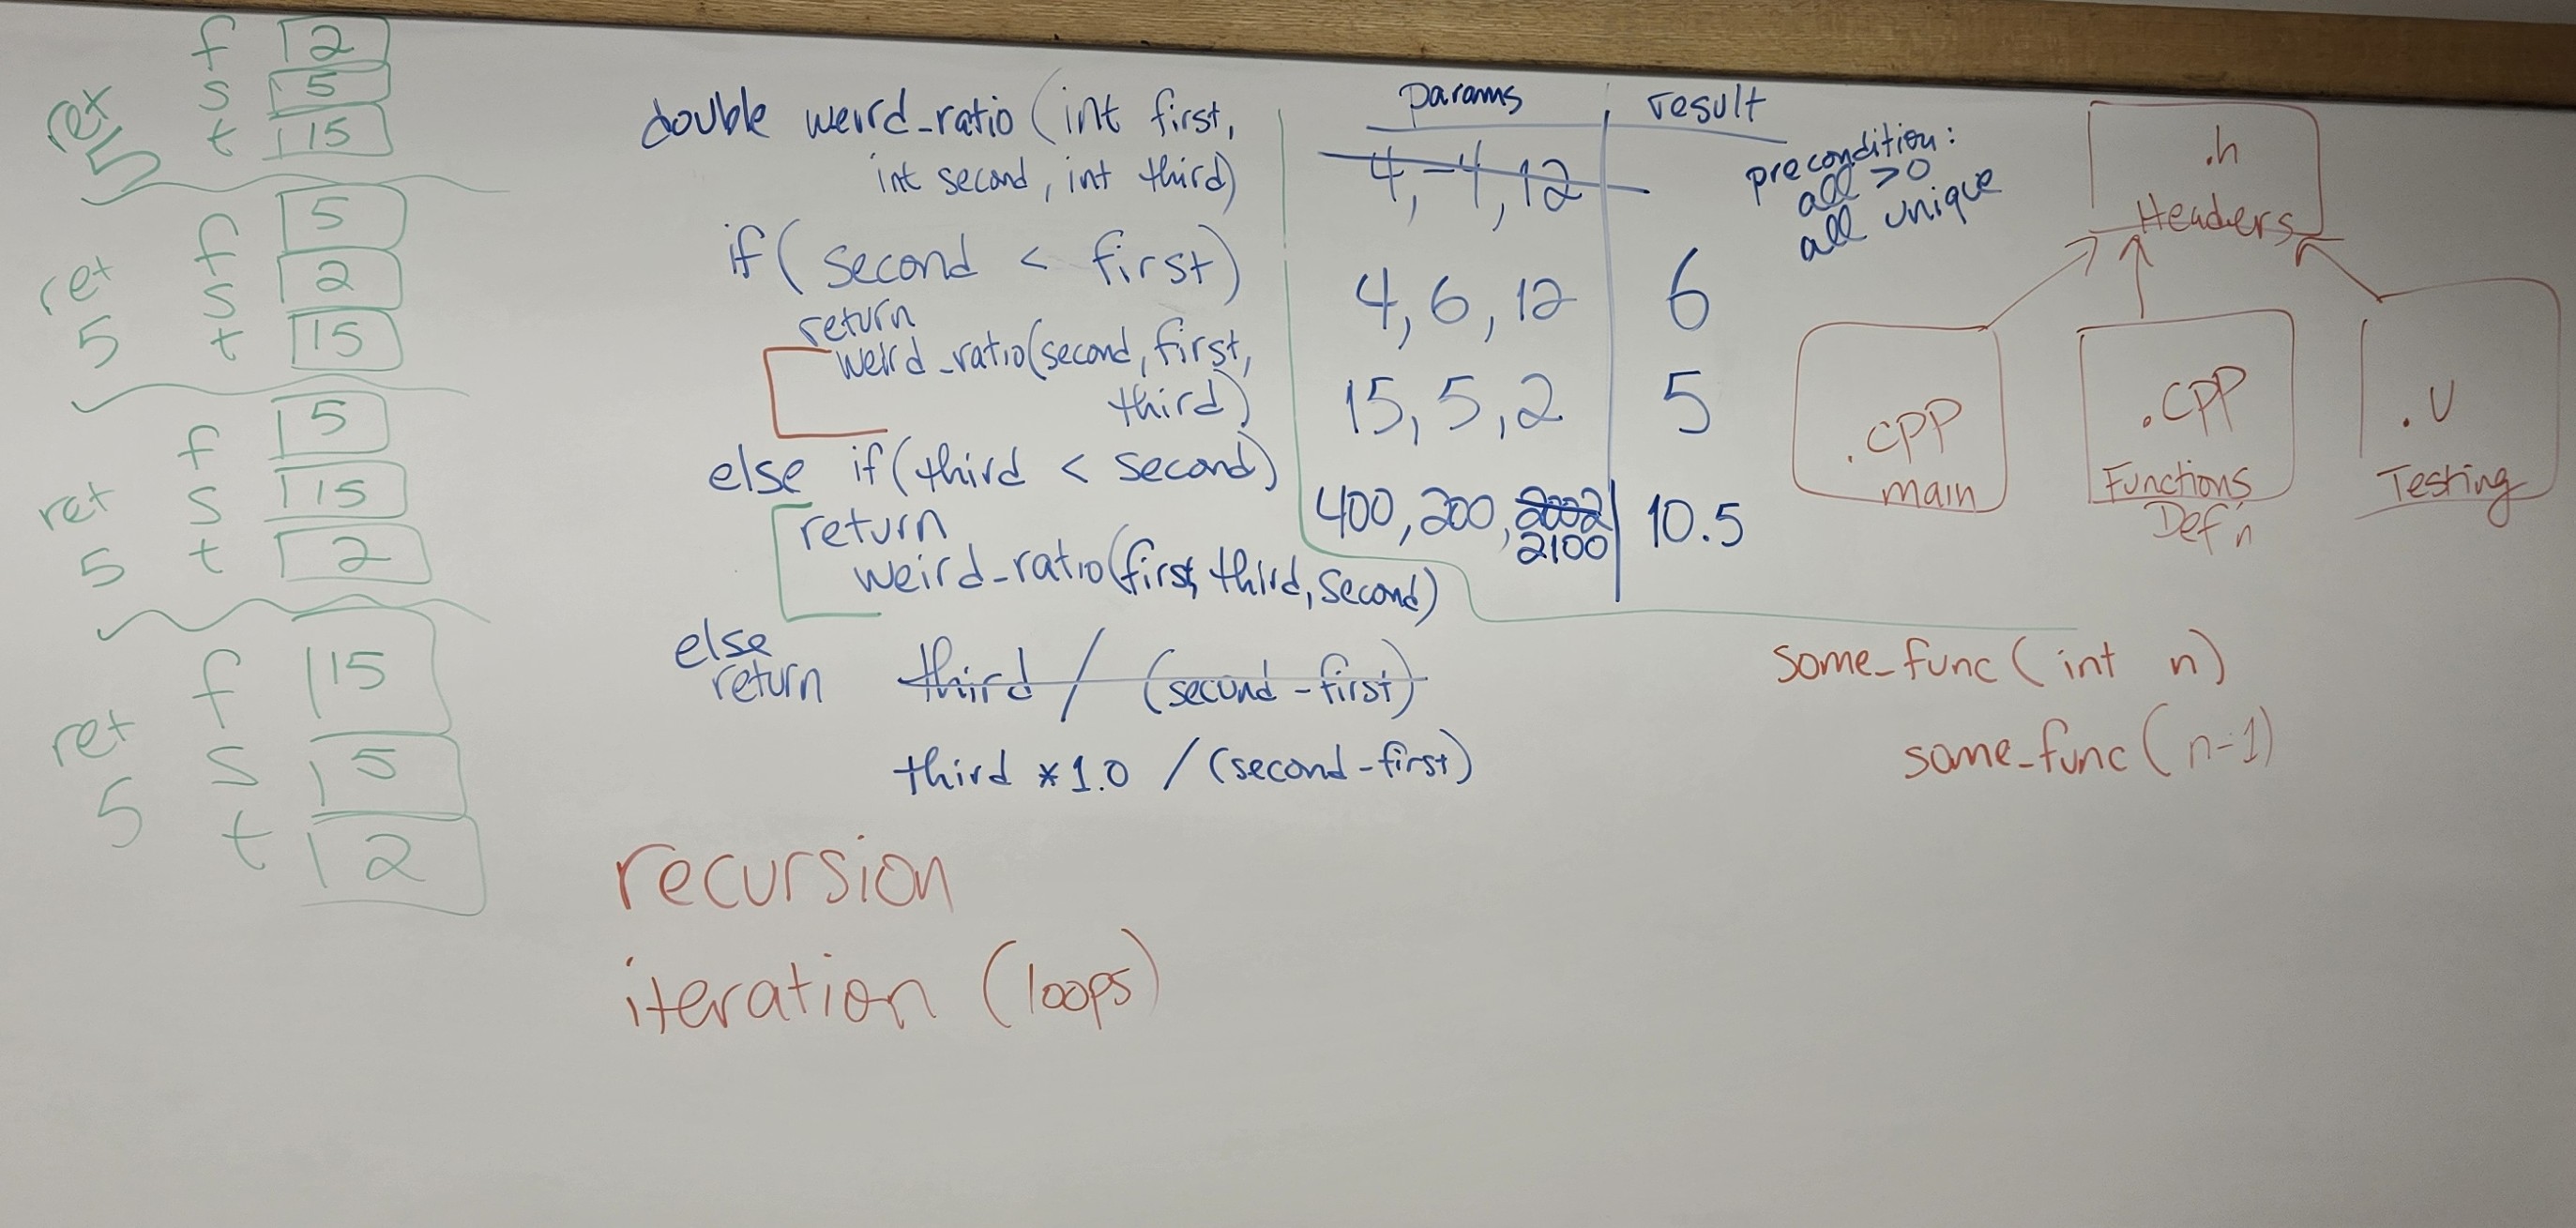 f 2
s 5
t 15
ret
5
f 5
s 2
t 15
ret
5
f 5
s 15
t 2
ret
5
f 15
s 5
t 2
ret
5
double weird_ratio (int first,
int second, int third)
if ( second < first)
return
weird_ratio(second, first,
third)
else if (third < second)
return
weird_ratio(first, third, second)
else
return third / (second - first)
third * 1.0 / (second - first)
recursion
iteration (loops)
params result
4, -4, 12
4, 6, 12 6
15, 5, 2 5
400, 200, 2002 10.5
2100
precondition:
all > 0
all unique
.h
Headers
.cpp
main
.cpp
Functions
Def'n
.U
Testing
some_func ( int n)
some_func ( n-1)